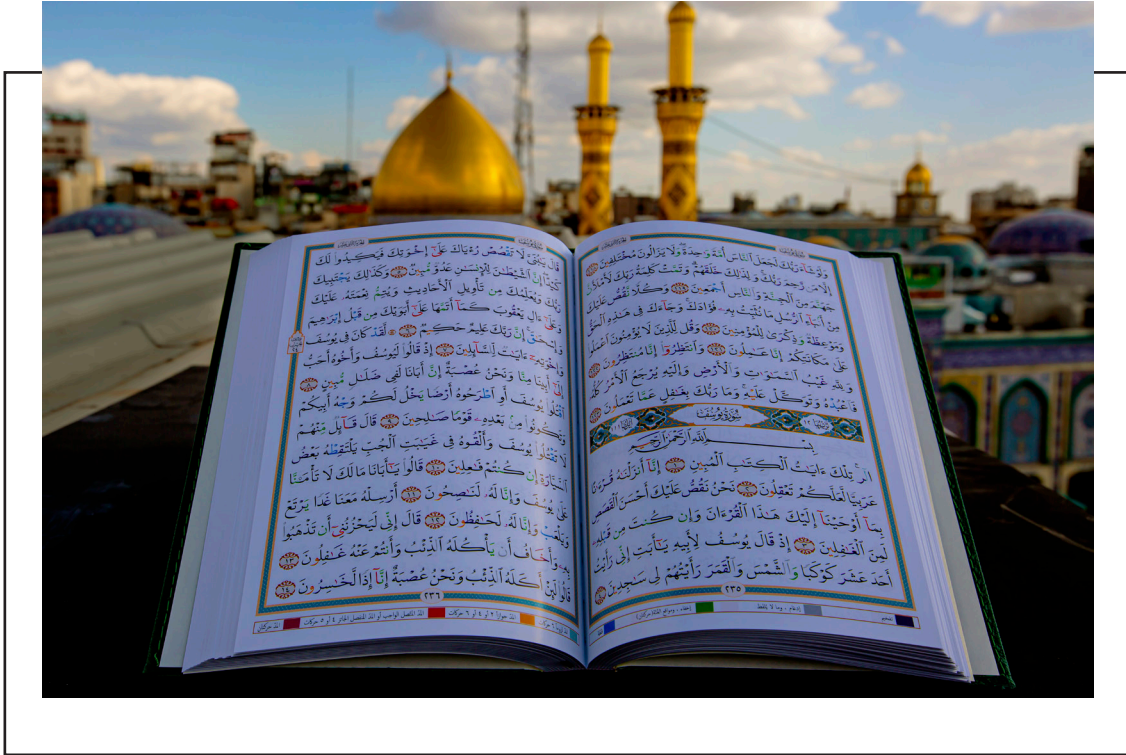 وَلَوْ شَآءَ رَبُّكَ لَجَعَلَ ٱلنَّاسَ أُمَّةً وَٰحِدَةً وَلَا يَزَالُونَ مُخْتَلِفِينَ ١١٨
إِلَّا مَن رَّحِمَ رَبُّكَ وَلِذَٰلِكَ خَلَقَهُمْ وَتَمَّتْ كَلِمَةُ رَبِّكَ لَأَمْلَأَنَّ
جَهَنَّمَ مِنَ ٱلْجِنَّةِ وَٱلنَّاسِ أَجْمَعِينَ ١١٩ وَكُلًّا نَّقُصُّ عَلَيْكَ
مِنْ أَنۢبَآءِ ٱلرُّسُلِ مَا نُثَبِّتُ بِهِۦ فُؤَادَكَ وَجَآءَكَ فِى هَٰذِهِ ٱلْحَقُّ
وَمَوْعِظَةٌ وَذِكْرَىٰ لِلْمُؤْمِنِينَ ١٢٠ وَقُل لِّلَّذِينَ لَا يُؤْمِنُونَ ٱعْمَلُوا۟
عَلَىٰ مَكَانَتِكُمْ إِنَّا عَٰمِلُونَ ١٢١ وَٱنتَظِرُوٓا۟ إِنَّا مُنتَظِرُونَ ١٢٢
وَلِلَّهِ غَيْبُ ٱلسَّمَٰوَٰتِ وَٱلْأَرْضِ وَإِلَيْهِ يُرْجَعُ ٱلْأَمْرُ كُلُّهُۥ
فَٱعْبُدْهُ وَتَوَكَّلْ عَلَيْهِ وَمَا رَبُّكَ بِغَٰفِلٍ عَمَّا تَعْمَلُونَ ١٢٣
سُورَةُ يُوسُفَ
بِسْمِ ٱللَّهِ ٱلرَّحْمَٰنِ ٱلرَّحِيمِ
الٓر تِلْكَ ءَايَٰتُ ٱلْكِتَٰبِ ٱلْمُبِينِ ١ إِنَّآ أَنزَلْنَٰهُ قُرْءَٰنًا
عَرَبِيًّا لَّعَلَّكُمْ تَعْقِلُونَ ٢ نَحْنُ نَقُصُّ عَلَيْكَ أَحْسَنَ ٱلْقَصَصِ
بِمَآ أَوْحَيْنَآ إِلَيْكَ هَٰذَا ٱلْقُرْءَانَ وَإِن كُنتَ مِن قَبْلِهِۦ
لَمِنَ ٱلْغَٰفِلِينَ ٣ إِذْ قَالَ يُوسُفُ لِأَبِيهِ يَٰٓأَبَتِ إِنِّى رَأَيْتُ
أَحَدَ عَشَرَ كَوْكَبًا وَٱلشَّمْسَ وَٱلْقَمَرَ رَأَيْتُهُمْ لِى سَٰجِدِينَ ٤
٢٣٥
تفخيم
إدغام ، وما لا يلفظ
إخفاء ، ومواقع الغنة (حركتان)
قَالَ يَٰبُنَىَّ لَا تَقْصُصْ رُءْيَاكَ عَلَىٰٓ إِخْوَتِكَ فَيَكِيدُوا۟ لَكَ
كَيْدًا إِنَّ ٱلشَّيْطَٰنَ لِلْإِنسَٰنِ عَدُوٌّ مُّبِينٌ ٥ وَكَذَٰلِكَ يَجْتَبِيكَ
رَبُّكَ وَيُعَلِّمُكَ مِن تَأْوِيلِ ٱلْأَحَادِيثِ وَيُتِمُّ نِعْمَتَهُۥ عَلَيْكَ
وَعَلَىٰٓ ءَالِ يَعْقُوبَ كَمَآ أَتَمَّهَا عَلَىٰٓ أَبَوَيْكَ مِن قَبْلُ إِبْرَٰهِيمَ
وَإِسْحَٰقَ إِنَّ رَبَّكَ عَلِيمٌ حَكِيمٌ ٦ لَّقَدْ كَانَ فِى يُوسُفَ
وَإِخْوَتِهِۦٓ ءَايَٰتٌ لِّلسَّآئِلِينَ ٧ إِذْ قَالُوا۟ لَيُوسُفُ وَأَخُوهُ أَحَبُّ
إِلَىٰٓ أَبِينَا مِنَّا وَنَحْنُ عُصْبَةٌ إِنَّ أَبَانَا لَفِى ضَلَٰلٍ مُّبِينٍ ٨
ٱقْتُلُوا۟ يُوسُفَ أَوِ ٱطْرَحُوهُ أَرْضًا يَخْلُ لَكُمْ وَجْهُ أَبِيكُمْ
وَتَكُونُوا۟ مِنۢ بَعْدِهِۦ قَوْمًا صَٰلِحِينَ ٩ قَالَ قَآئِلٌ مِّنْهُمْ
لَا تَقْتُلُوا۟ يُوسُفَ وَأَلْقُوهُ فِى غَيَٰبَتِ ٱلْجُبِّ يَلْتَقِطْهُ بَعْضُ
ٱلسَّيَّارَةِ إِن كُنتُمْ فَٰعِلِينَ ١٠ قَالُوا۟ يَٰٓأَبَانَا مَا لَكَ لَا تَأْمَ۫نَّا
عَلَىٰ يُوسُفَ وَإِنَّا لَهُۥ لَنَٰصِحُونَ ١١ أَرْسِلْهُ مَعَنَا غَدًا يَرْتَعْ
وَيَلْعَبْ وَإِنَّا لَهُۥ لَحَٰفِظُونَ ١٢ قَالَ إِنِّى لَيَحْزُنُنِىٓ أَن تَذْهَبُوا۟
بِهِۦ وَأَخَافُ أَن يَأْكُلَهُ ٱلذِّئْبُ وَأَنتُمْ عَنْهُ غَٰفِلُونَ ١٣
قَالُوا۟ لَئِنْ أَكَلَهُ ٱلذِّئْبُ وَنَحْنُ عُصْبَةٌ إِنَّآ إِذًا لَّخَٰسِرُونَ ١٤
٢٣٦
مد جوازاً ٢ أو ٤ أو ٦ حركات
المد المتصل الواجب أو المد المنفصل الجائز ٤ أو ٥ حركات